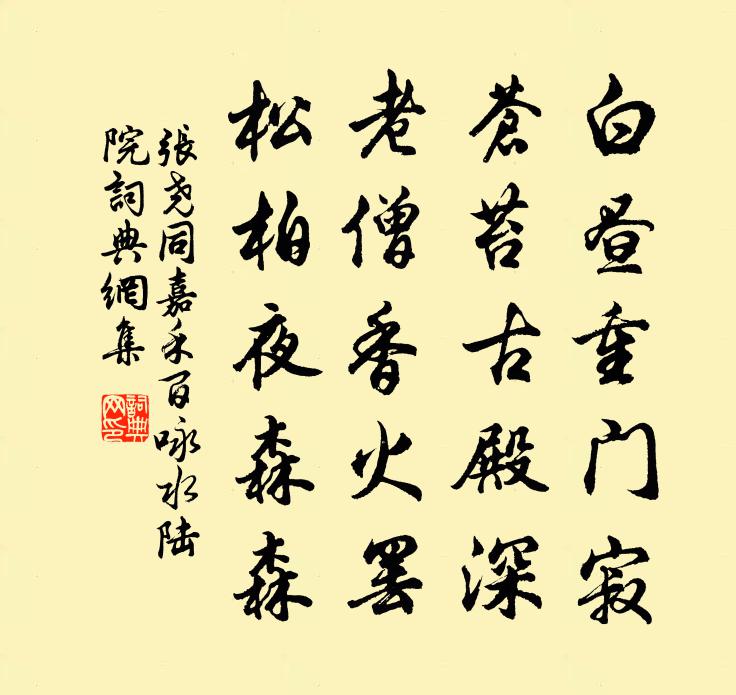 白昼重門寂
蒼苔古殿深
老僧香火罢
松柏夜森森
張尧同嘉禾百咏水陆
院詞典網集
詞典
网印